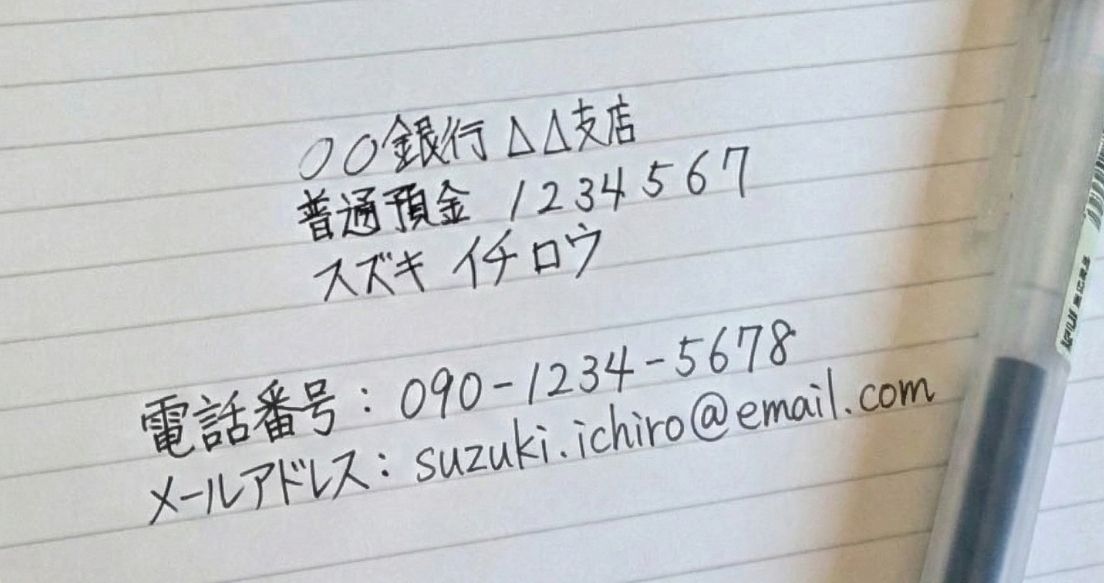 ○○銀行 △△支店
普通預金 1234567
スズキ イチロウ
電話番号：090-1234-5678
メールアドレス：suzuki.ichiro@email.com